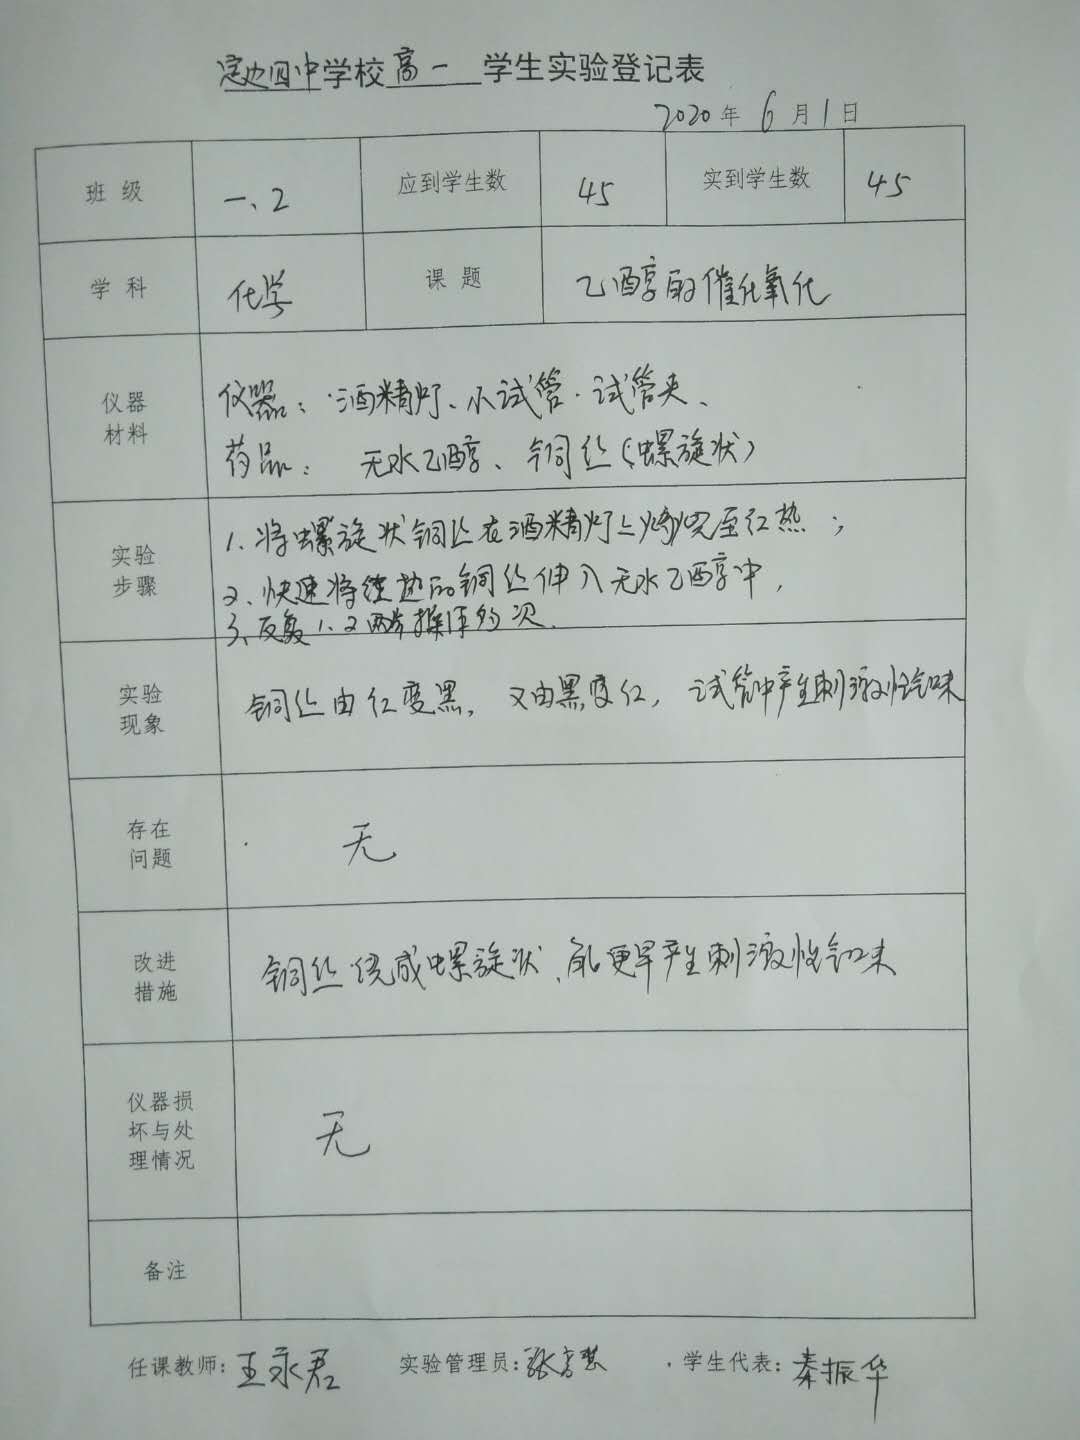 定边四中学校高一 学生实验登记表
2020年6月1日
班级 一、2 应到学生数 45 实到学生数 45
学科 化学 课题 乙醇的催化氧化
仪器材料
仪器：酒精灯、小试管、试管夹、
药品： 无水乙醇、铜丝(螺旋状)
实验步骤
1. 将螺旋状铜丝在酒精灯上灼烧至红热；
2、快速将红热的铜丝伸入无水乙醇中，
3、反复1、2两步操作约 次.
实验现象
铜丝由红变黑，又由黑变红，试管中产生刺激性气味
存在问题
无
改进措施
铜丝绕成螺旋状、能更早产生刺激性气味
仪器损坏与处理情况
无
备注
任课教师：王永君 实验管理员：张 学生代表：秦振华